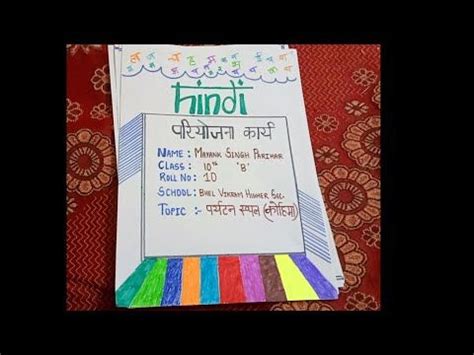 hindi
परियोजना कार्य
NAME : MAYANK SINGH PARIHAR
CLASS : 10th 'B'
ROLL NO : 10
SCHOOL : BHEL VIKRAM HIGHER SEC.
TOPIC :- पर्यटन स्थल (कोहिमा)